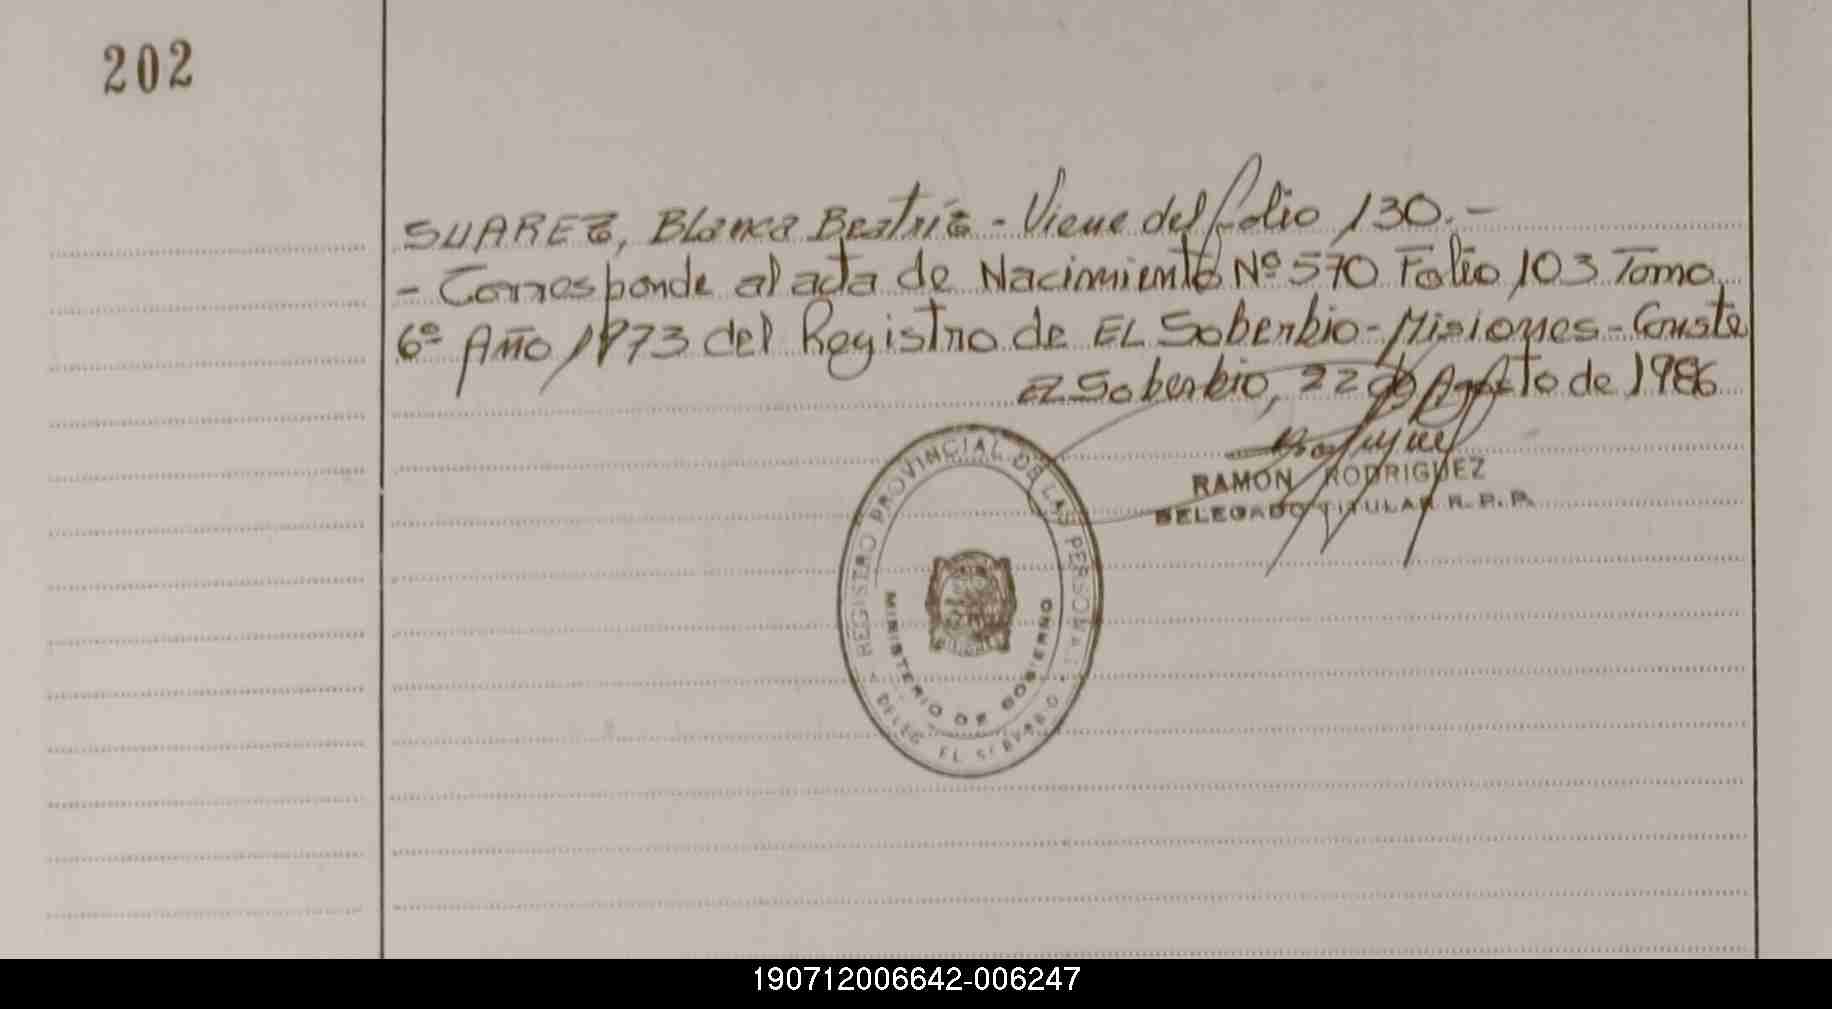 202
SUAREZ, Blanca Beatriz - Viene del folio 130.-
- Corresponde al acta de Nacimiento Nº 570 Folio 103 Tomo
6º Año 1973 del Registro de EL Soberbio - Misiones - Conste
EL Soberbio, 22 de Agosto de 1986
RAMON RODRIGUEZ
DELEGADO TITULAR R. P. P.
REGISTRO PROVINCIAL DE LAS PERSONAS
MINISTERIO DE GOBIERNO
DELEG. EL
190712006642-006247